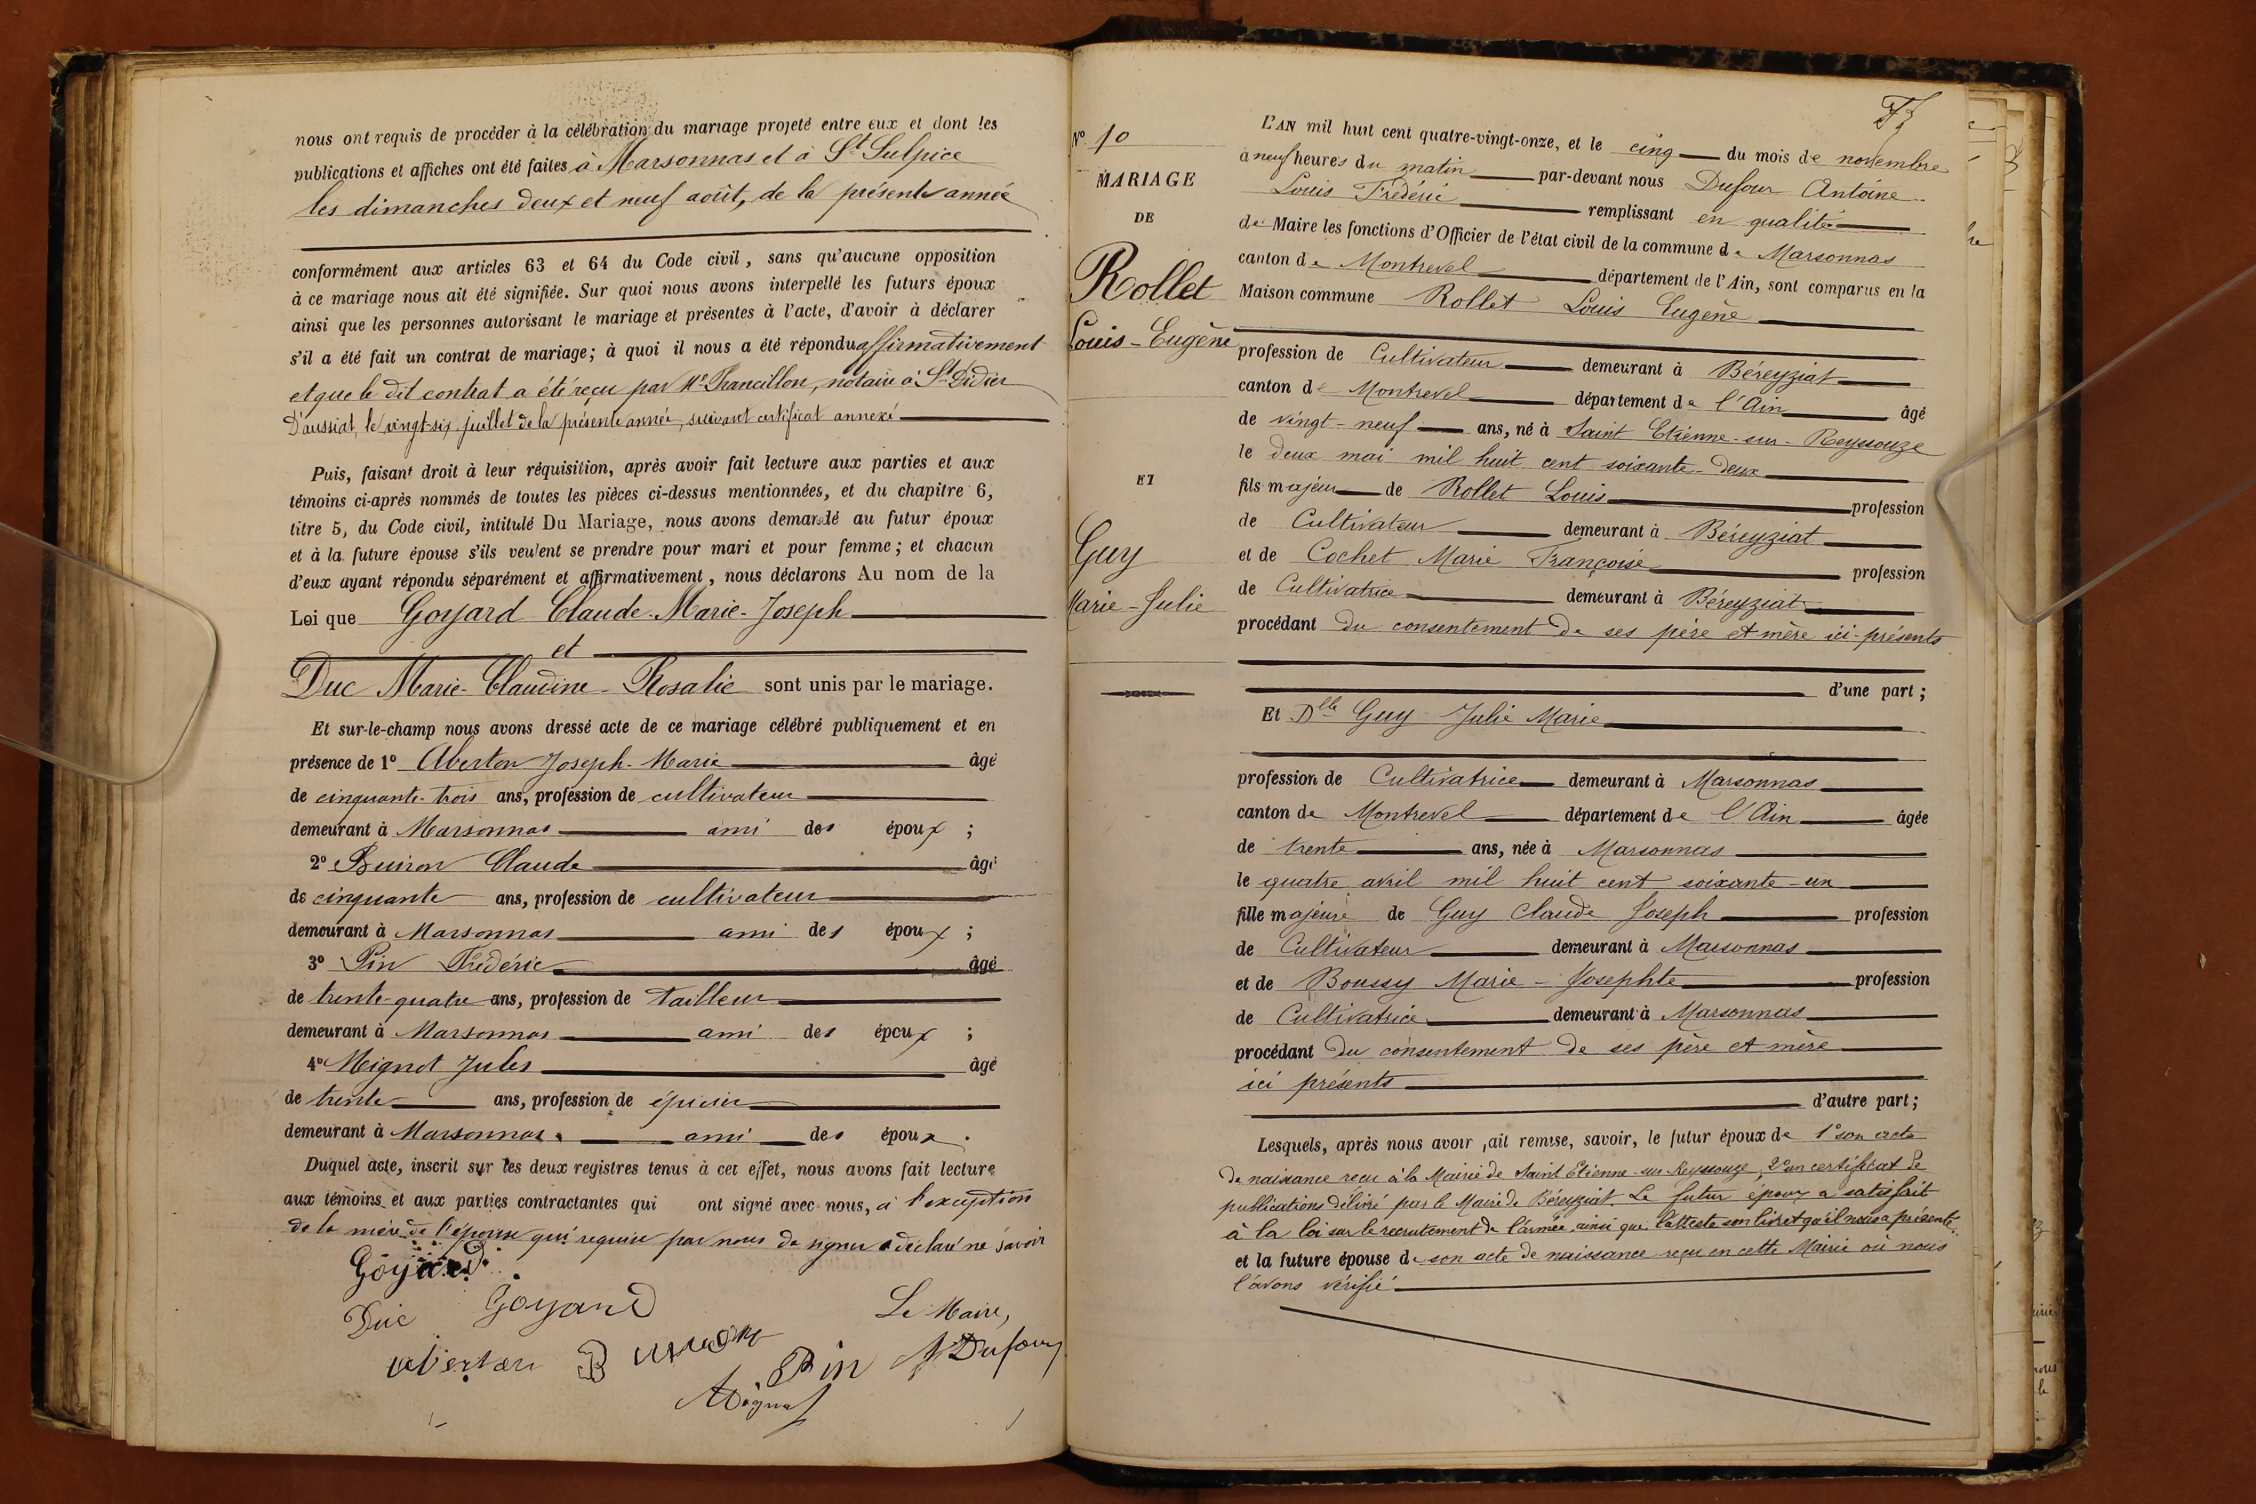 nous ont requis de procéder à la célébration du mariage projeté entre eux et dont les
publications et affiches ont été faites à Marsonnas et à St Sulpice
les dimanches deux et neuf août, de la présente année
conformément aux articles 63 et 64 du Code civil, sans qu'aucune opposition
à ce mariage nous ait été signifiée. Sur quoi nous avons interpellé les futurs époux
ainsi que les personnes autorisant le mariage et présentes à l'acte, d'avoir à déclarer
s'il a été fait un contrat de mariage; à quoi il nous a été répondu affirmativement
et que le dit contrat a été reçu par Me Francillon, notaire à St Didier
D'aussiat, le vingt-six juillet de la présente année, suivant certificat annexé
Puis, faisant droit à leur réquisition, après avoir fait lecture aux parties et aux
témoins ci-après nommés de toutes les pièces ci-dessus mentionnées, et du chapitre 6,
titre 5, du Code civil, intitulé Du Mariage, nous avons demandé au futur époux
et à la future épouse s'ils veulent se prendre pour mari et pour femme; et chacun
d'eux ayant répondu séparément et affirmativement, nous déclarons Au nom de la
Loi que Goyard Claude-Marie-Joseph
et
Duc Marie-Claudine-Rosalie sont unis par le mariage.
Et sur-le-champ nous avons dressé acte de ce mariage célébré publiquement et en
présence de 1° Aberton Joseph-Marie âgé
de cinquante-trois ans, profession de cultivateur
demeurant à Marsonnas ami des époux ;
2° Buiron Claude âgé
de cinquante ans, profession de cultivateur
demeurant à Marsonnas ami des époux ;
3° Pin Frédéric âgé
de trente-quatre ans, profession de tailleur
demeurant à Marsonnas ami des époux ;
4° Mignot Jules âgé
de trente ans, profession de épicier
demeurant à Marsonnas ami des époux .
Duquel acte, inscrit sur les deux registres tenus à cet effet, nous avons fait lecture
aux témoins et aux parties contractantes qui ont signé avec nous, à l'exception
de la mère de l'épouse qui requise par nous de signer a déclaré ne savoir
Goyard
Duc Goyard Le Maire,
aberton Buiron Pin A Dufour
Mignot
N° 10
MARIAGE
DE
Rollet
Louis-Eugène
ET
Guy
Marie-Julie
L'AN mil huit cent quatre-vingt-onze, et le cinq du mois de novembre
à neuf heures du matin par-devant nous Dufour Antoine
Louis Frédéric remplissant en qualité
de Maire les fonctions d'Officier de l'état civil de la commune de Marsonnas
canton de Montrevel département de l'Ain, sont comparus en la
Maison commune Rollet Louis Eugène
profession de Cultivateur demeurant à Béreyziat
canton de Montrevel département de l'Ain âgé
de vingt-neuf ans, né à Saint Etienne-sur-Reyssouze
le deux mai mil huit cent soixante-deux
fils majeur de Rollet Louis profession
de Cultivateur demeurant à Béreyziat
et de Cochet Marie Françoise profession
de Cultivatrice demeurant à Béreyziat
procédant du consentement de ses père et mère ici-présents
d'une part ;
Et Dlle Guy Julie Marie
profession de Cultivatrice demeurant à Marsonnas
canton de Montrevel département de l'Ain âgée
de trente ans, née à Marsonnas
le quatre avril mil huit cent soixante-un
fille majeure de Guy Claude Joseph profession
de Cultivateur demeurant à Marsonnas
et de Boussy Marie-Josephte profession
de Cultivatrice demeurant à Marsonnas
procédant du consentement de ses père et mère
ici présents
d'autre part ;
Lesquels, après nous avoir fait remise, savoir, le futur époux de 1° son acte
de naissance reçu à la Mairie de Saint Etienne-sur-Reyssouze, 2° un certificat de
publications délivré par le Maire de Béreyziat. Le futur époux a satisfait
à la loi sur le recrutement de l'armée ainsi que l'atteste son livret qu'il nous a présenté
et la future épouse de son acte de naissance reçu en cette Mairie où nous
l'avons vérifié